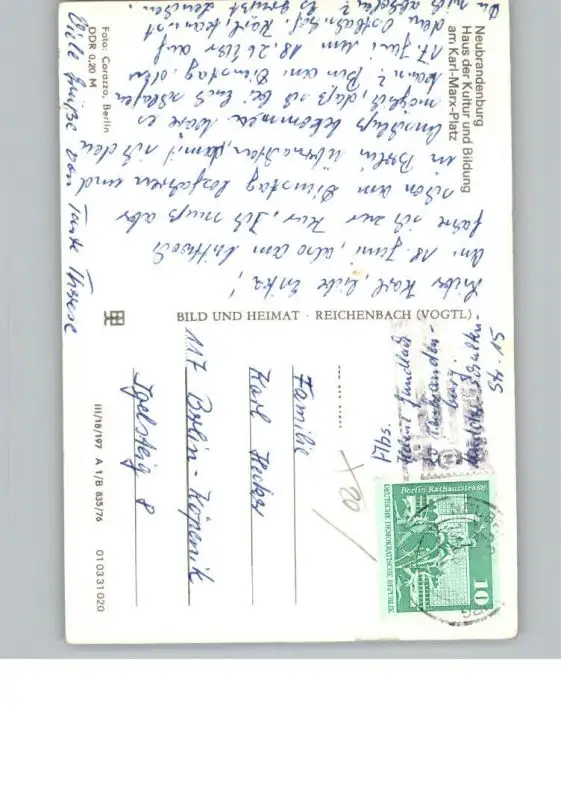 Lieber Karl, liebe Erika!
Am 18. Juni, also am Mittwoch
fahre ich zur Kur. Ich muß aber
schon am Dienstag losfahren und
in Berlin übernachten, damit ich den
Anschluß bekomme. Wäre es
möglich, daß ich bei Euch schlafen
kann? Bin am Dienstag, den
17. Juni um 18.26 Uhr auf
dem Ostbahnhof. Karl, kannst
Du mich abholen? Es grüßt
Viele Grüße von Tante
Neubrandenburg
Haus der Kultur und Bildung
am Karl-Marx-Platz
Foto: Corazza, Berlin
DDR 0,20 M
BILD UND HEIMAT · REICHENBACH (VOGTL)
III/18/197 A 1/B 835/76 01 03 31 020
Abs.
Neubranden-
burg
Str. 15
Familie
Karl
117 Berlin-Köpenik
Igelsteig 8
20
Berlin Rathausstraße
DEUTSCHE DEMOKRATISCHE REPUBLIK
10